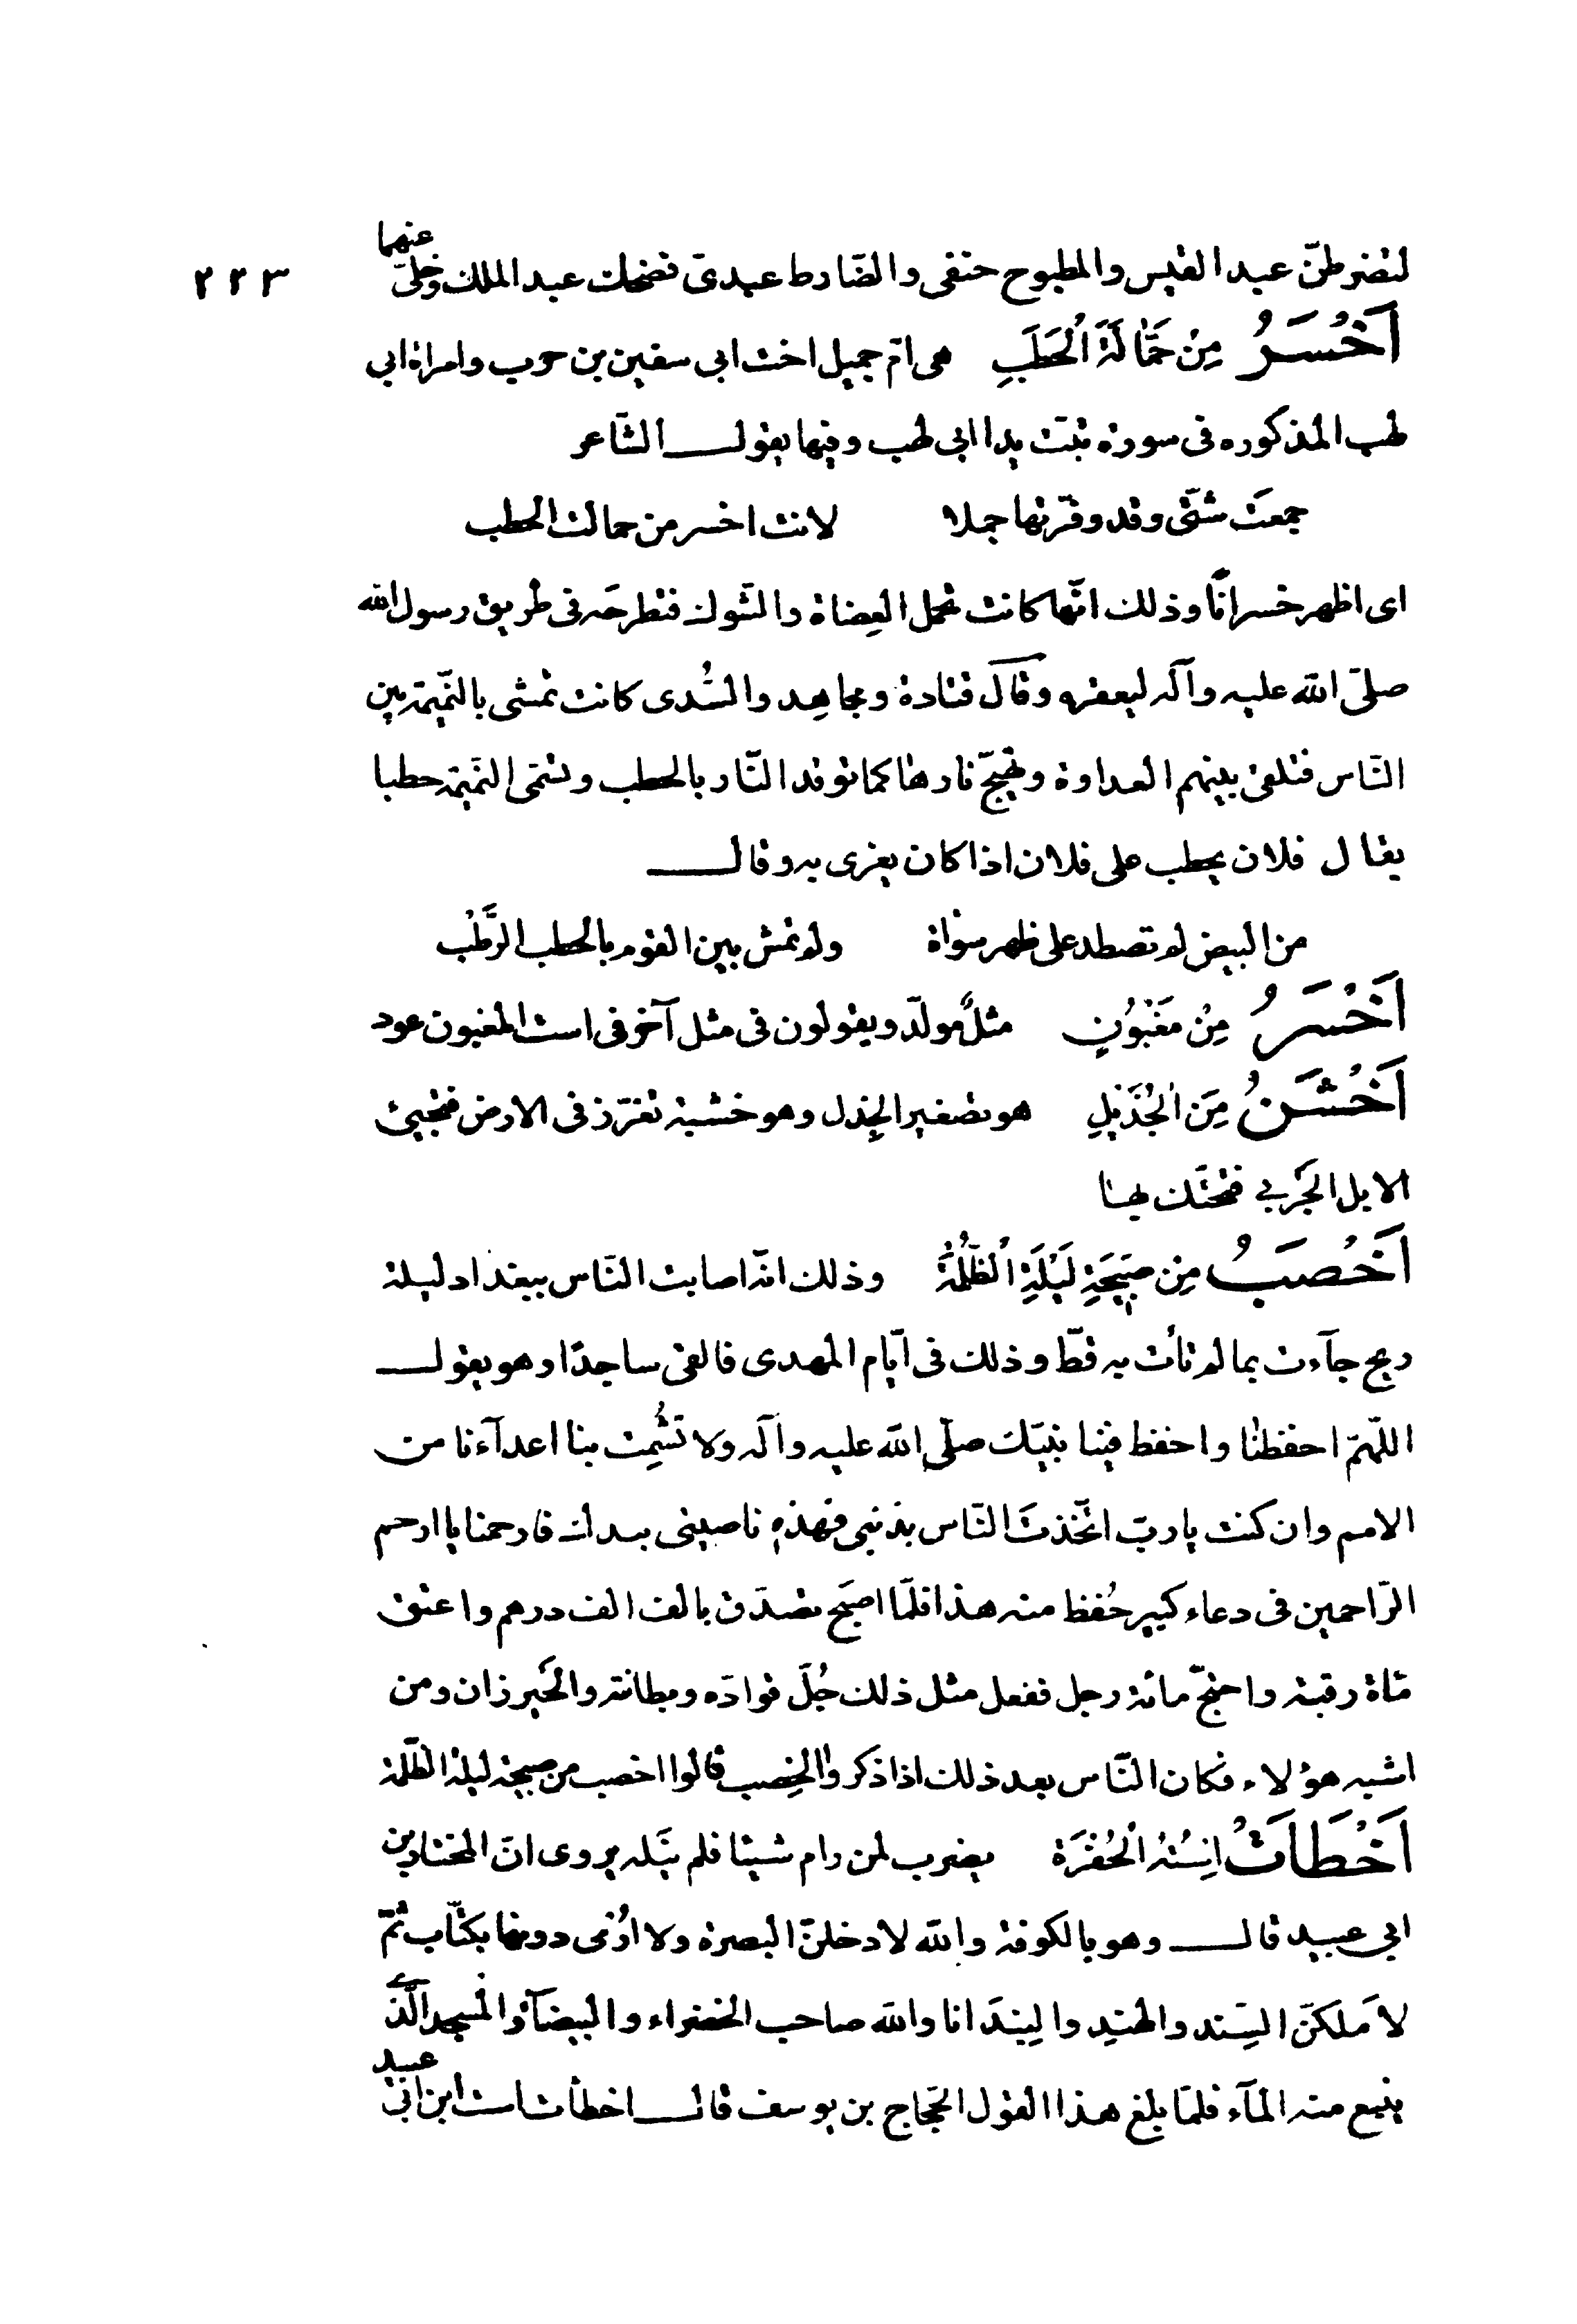 لتضرطنّ عبد القيس والمطبوح حنقى والضّارط عبدىّ فضحك عبد الملك وخلّى عنهما
٢٢٣
اَخْسَرُ مِنْ حَمّالَةَ الْحَطَبِ هى امّ جميل اخت ابى سفين بن حرب وامراة ابى
لهب المذكوره فى سورة تبّت يدا ابى لهب وفيها يقول الشّاعر
جمعَت شتّى وقد وفّرتها جملا لانت اخسر من حمالت الحطب
اى اظهر خسرانًا وذلك انّها كانت تحمل العِضاة والشّوك فتطرحَه فى طريق رسول الله
صلىّ الله عليه وآله ليعقره وقال قتادة ومجاهِد والسُّدى كانت تمشى بالنّميمة بين
النّاس فتلقى بينهم العداوة وتهيجّ نارها كما توقد النّار بالحطب وتسمّى النّميمة حطبا
يقال فلان يحطب على فلان اذا كان يغرى به وقال
من البيض لم تصطد على ظهر سواة ولم تمش بين القوم بالحطب الرَّطْب
اَخْسَرُ مِنْ مَغْبُوْنٍ مثلٌ مولّد ويقولون فى مثل آخر فى است المغبون عود
اَخْشَنُ مِنَ الْجُذَيْلِ هو تصغير الجِذل وهو خشبة تغرّز فى الارض فتجيئ
الابل الجَربى فتحتَك بها
اَخْصَبُ مِنْ صَبيحَةِ لَيْلَةِ الْظُّلْمَةْ وذلك انّه اصابت النّاس ببغداد ليلة
ريح جآءت بما لم تأت به قطّ وذلك فى ايّام المهدى فالقى ساجدًا وهو يقول
اللّهمّ احفظنا واحفظ فينا نبيّك صلّى الله عليه وآله ولا تشُمِت بنا اعدآءنا من
الامم وان كنت ياربّ اتّخذتَ النّاس بذنبى فهذهِ ناصيتى بيدك فارحمنا يا ارحم
الرّاحمين فى دعاء كثير حُفظ منه هذا فلمّا اصبَح تصدّق بالف الف درهم واعتق
مّاة رقبة واحجّ مائة رجل ففعل مثل ذلك جُلّ قوادّه وبطانته والخَيزران ومن
اشبه هؤلاء فكان النّاس بعد ذلك اذا ذكروا الخِصب قالوا اخصب من صبيحة ليلة الظّلمة
اَخْطَاَتْ اِسْتُهُ الْحُفْرَةَ يضرب لمن رام شيئا فلم يَنَله يروى انّ المختار بن
ابي عبيد قال وهو بالكوفة والله لادخلنّ البصرة ولا اُرْمى دونها بكتّاب ثمّ
لاَملكنّ السِّند والهنِد والبِندَ انا والله صاحب الخضراء والبيضآء والمسجد الّذى
ينبع منه المآء فلمّا بلغ هذا القول الحّجاج بن يوسف قال اخطأت است ابن ابى عبيد